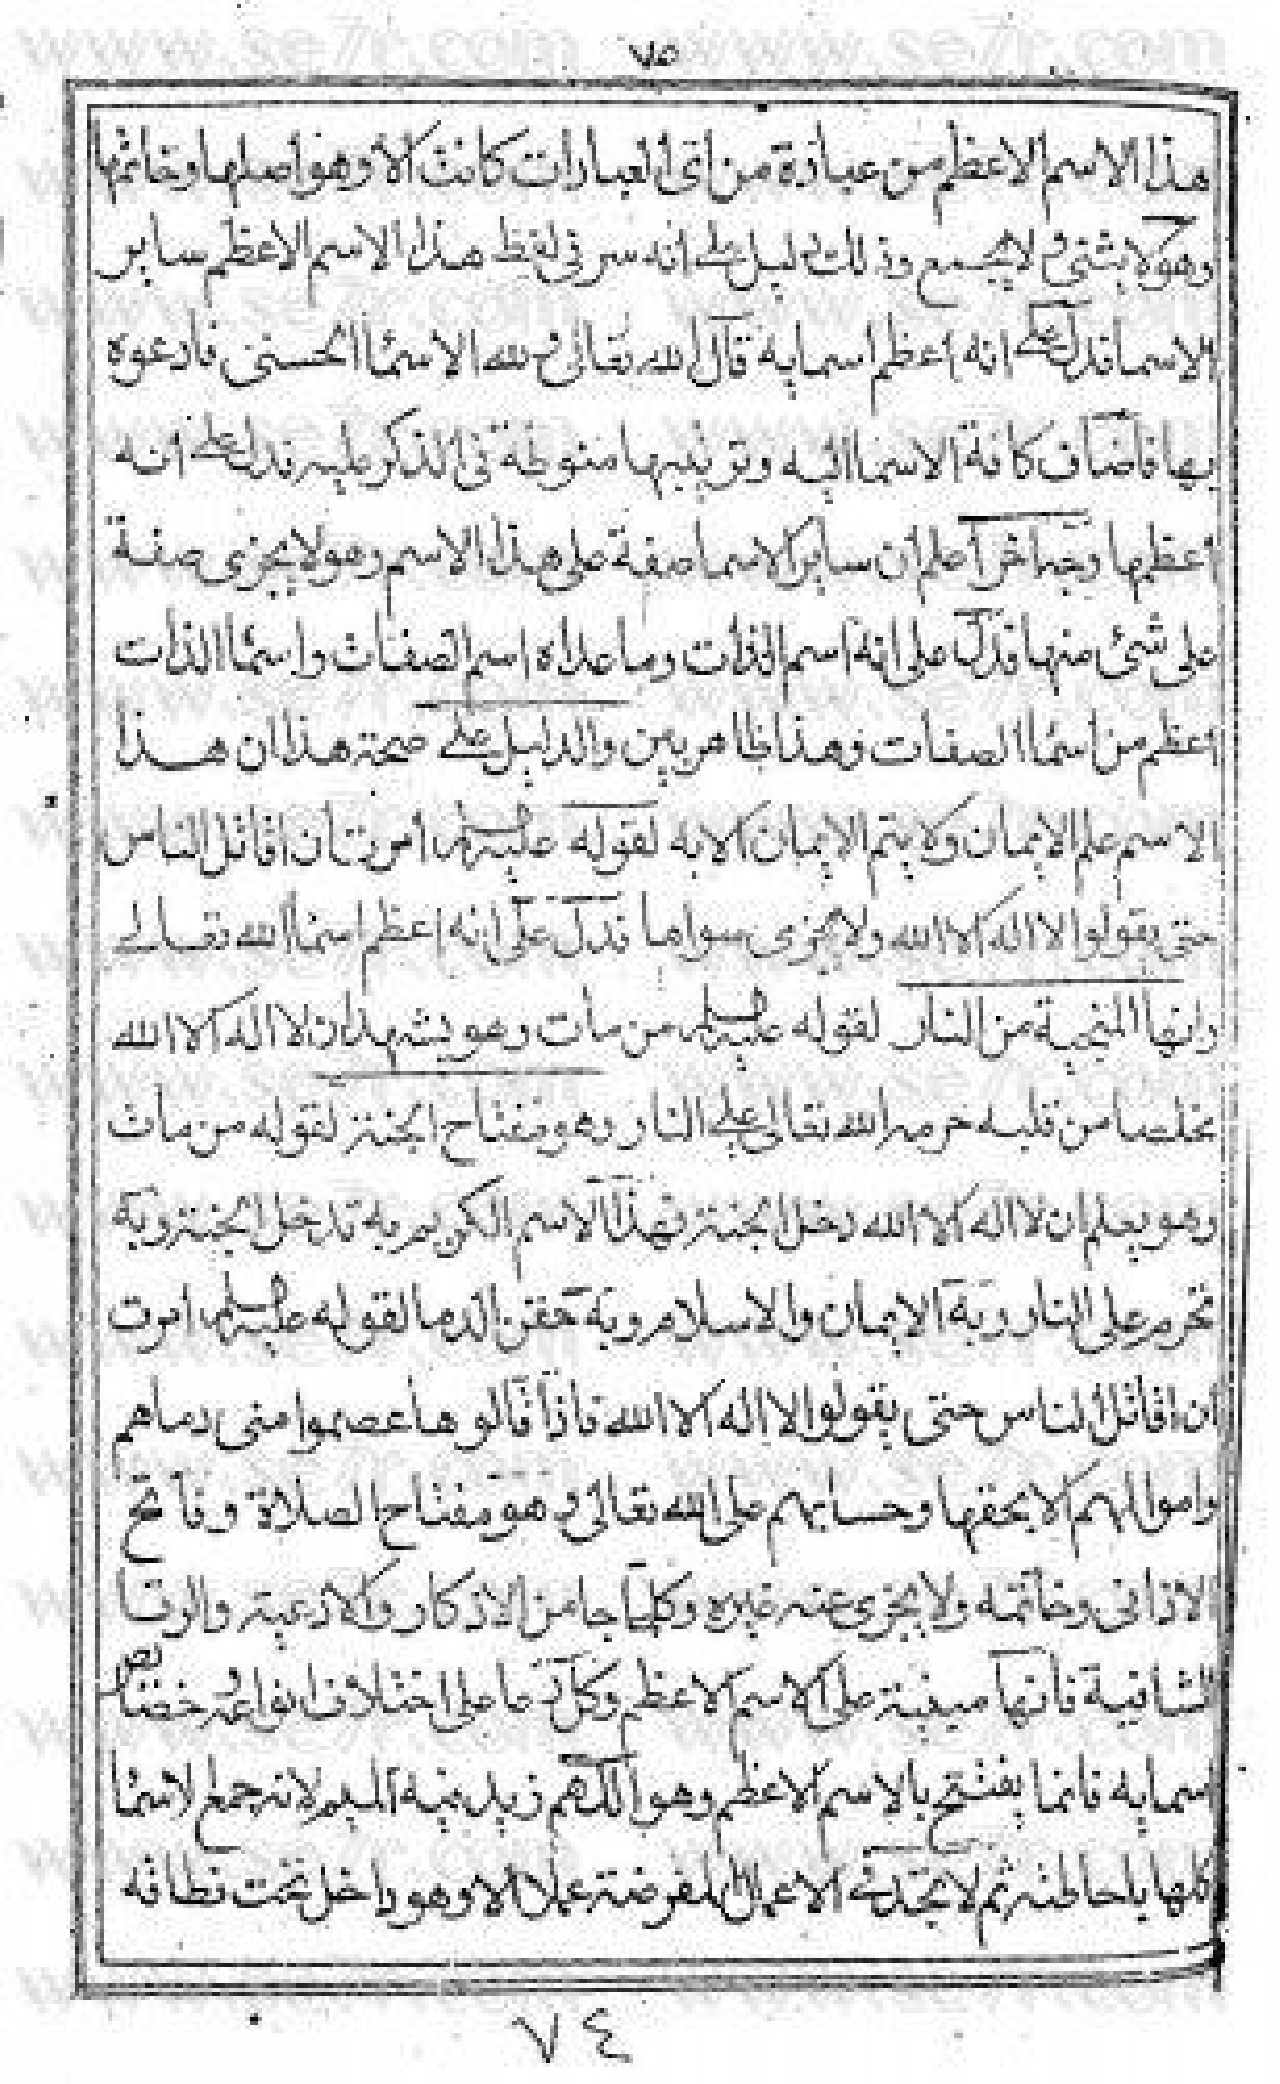 www.se7r.com www.se7r.com
٧٥
هذا الاسم الاعظم من عبادة من اى العبادات كانت الا وهو اصلها وخاتمها
وهو لا يثنى ولا يجمع وذلك دليل على انه سر فى لفظ هذا الاسم الاعظم ساير
الاسما فدل على انه اعظم اسمايه قال الله تعالى ولله الاسما الحسنى فادعوه
بها فاضاف كافة الاسما اليه وترتيبها منوطة فى الذكر عليه فدل على انه
اعظمها وجه اخر اعلم ان ساير الاسما صفة على هذا الاسم وهو لا يجزى صفة
على شئ منها فدل على انه اسم الذات وما عداه اسم الصفات واسما الذات
اعظم من اسما الصفات وهذا ظاهر بين والدليل على صحة هذا ان هذا
الاسم علم الايمان ولا يتم الايمان الا به لقوله عليه السلم امرت ان اقاتل الناس
حتى يقولوا لا اله الا الله ولا يجزى سواها فدل على انه اعظم اسما الله تعالى
وانها المنجية من النار لقوله عليه السلم من مات وهو يشهد ان لا اله الا الله
مخلصا من قلبه حرمه الله تعالى على النار وهو مفتاح الجنة لقوله من مات
وهو يعلم ان لا اله الا الله دخل الجنة فهذا الاسم الكريم به تدخل الجنة وبه
تحرم على النار وبه الايمان والاسلام وبه حقن الدما لقوله عليه السلم امرت
ان اقاتل الناس حتى يقولوا لا اله الا الله فاذا قالوها عصموا منى دماهم
واموالهم الا بحقها وحسابهم على الله تعالى وهو مفتاح الصلاة وفاتح
الاذان وخاتمه ولا يجزى عنه غيره وكلما جا من الاذكار والادعية والرقا
الشافية فانها مبنية على الاسم الاعظم وكل دعا على اختلاف انواعه خصتا نص
اسمايه فانما يفتتح بالاسم الاعظم وهو اللهم زيد فيه الميم لانه جمع الاسما
كلها باحاطته ثم لا تجد فى الاعمال المفرضة عملا الا وهو داخل تحت نطاقه
٧٤